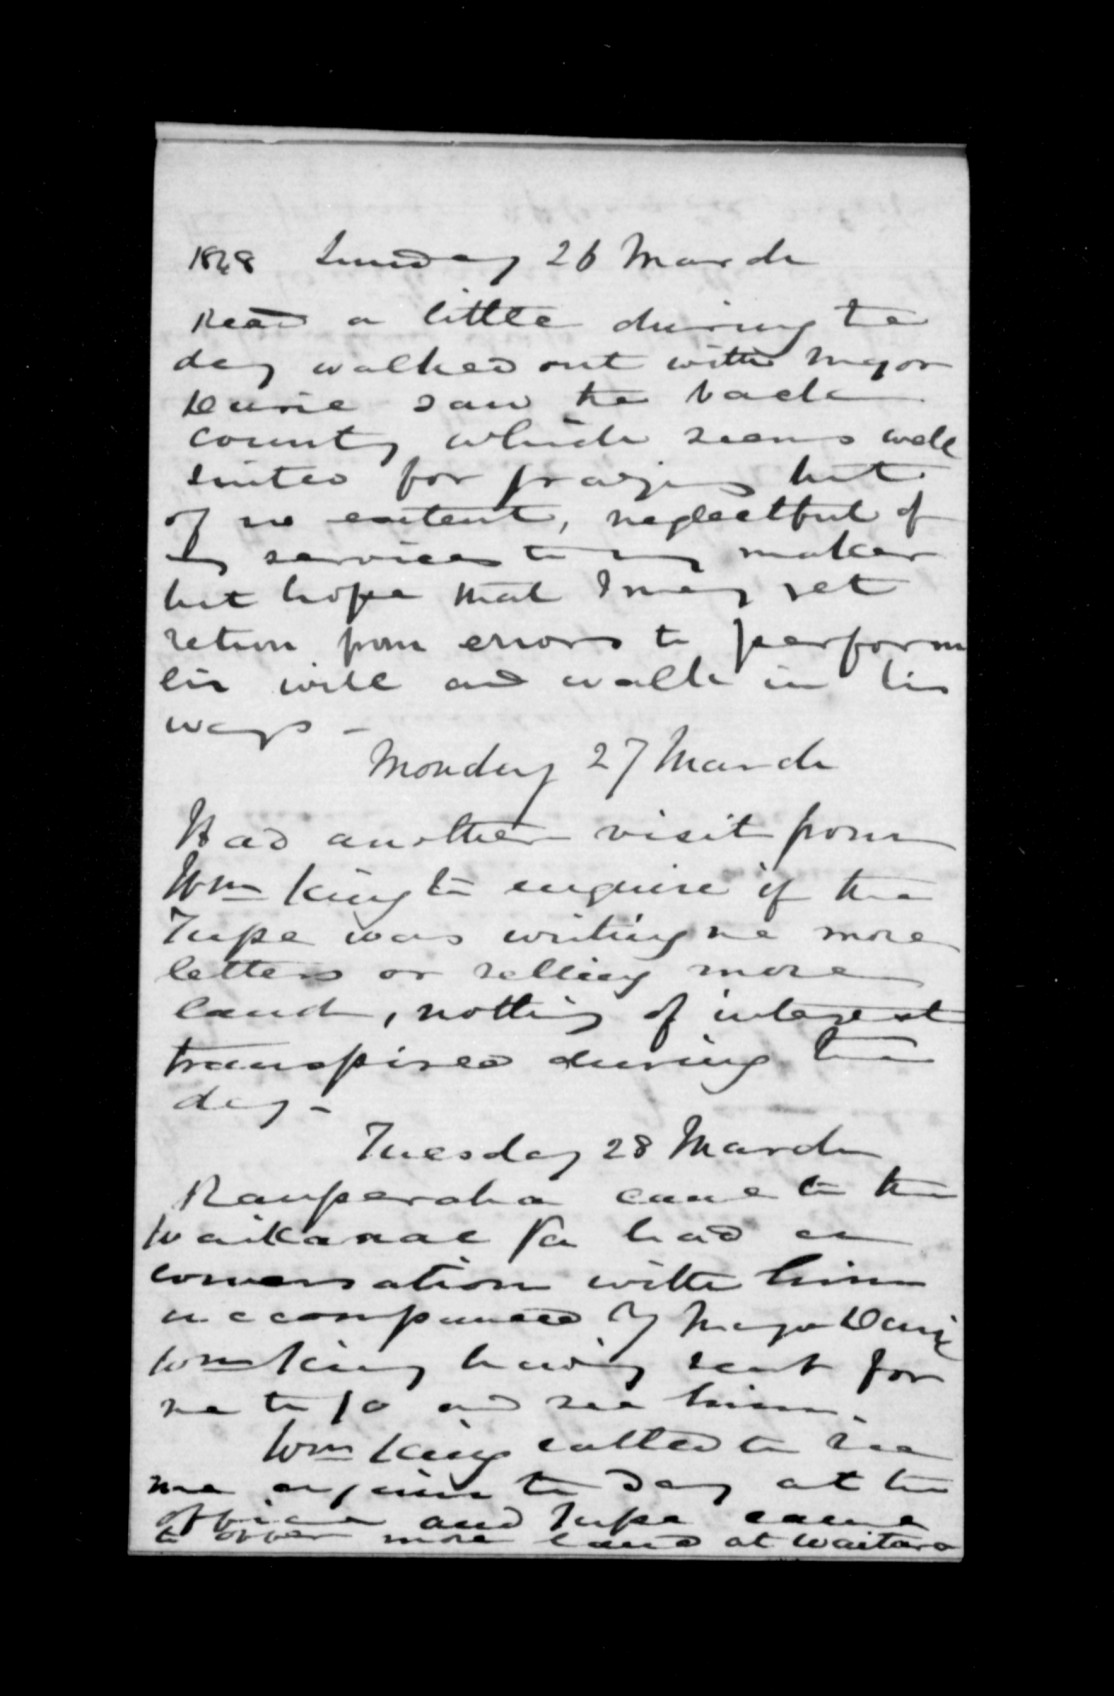 1848 Sunday 26 March
Read a little during the
day walked out with Major
Durie saw the back
country which seems well
suited for grazing but
of no extent, neglectful of
my services to my maker
but hope that I may yet
return from errors to perform
his will and walk in his
ways -
Monday 27 March
Had another visit from
Wm King to enquire if the
Tupe was writing me more
letters or selling more
land, nothing of interest
transpired during the
day -
Tuesday 28 March
Rauperaha came to the
Waikanae Pa had a
conversation with him
accompanied by Major Durie
Wm King having sent for
me to go and see him.
Wm King called to see
me again to day at the
office and Tupe came
to offer more land at Waitara